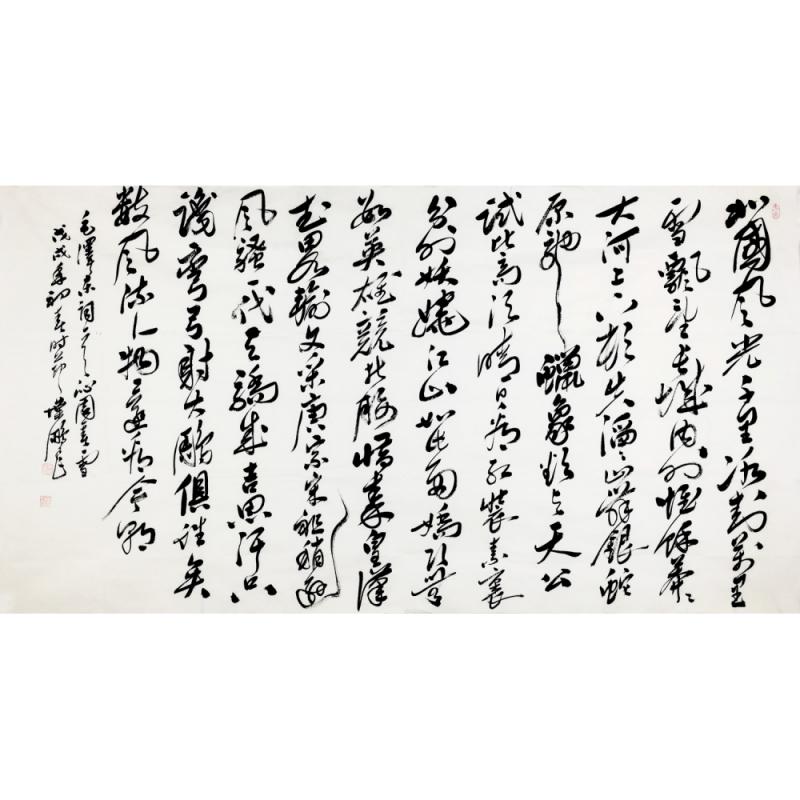 北國風光千里冰封萬里
雪飄望長城內外惟餘莽莽
大河上下頓失滔滔山舞銀蛇
原馳蠟象欲與天公
試比高須晴日看紅裝素裹
分外妖嬈江山如此多嬌引無
數英雄競折腰惜秦皇漢
武略輸文采唐宗宋祖稍遜
風騷一代天驕成吉思汗只
識彎弓射大雕俱往矣
數風流人物還看今朝
毛澤東詞沁園春雪
戊戌年初春時節